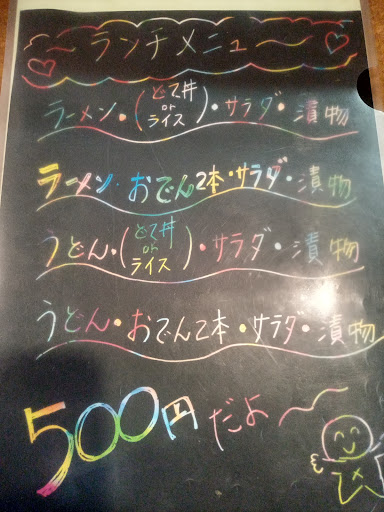 ～ランチメニュー～
ラーメン・(どて丼 or ライス)・サラダ・漬物
ラーメン・おでん2本・サラダ・漬物
うどん・(どて丼 or ライス)・サラダ・漬物
うどん・おでん2本・サラダ・漬物
500円だよ～